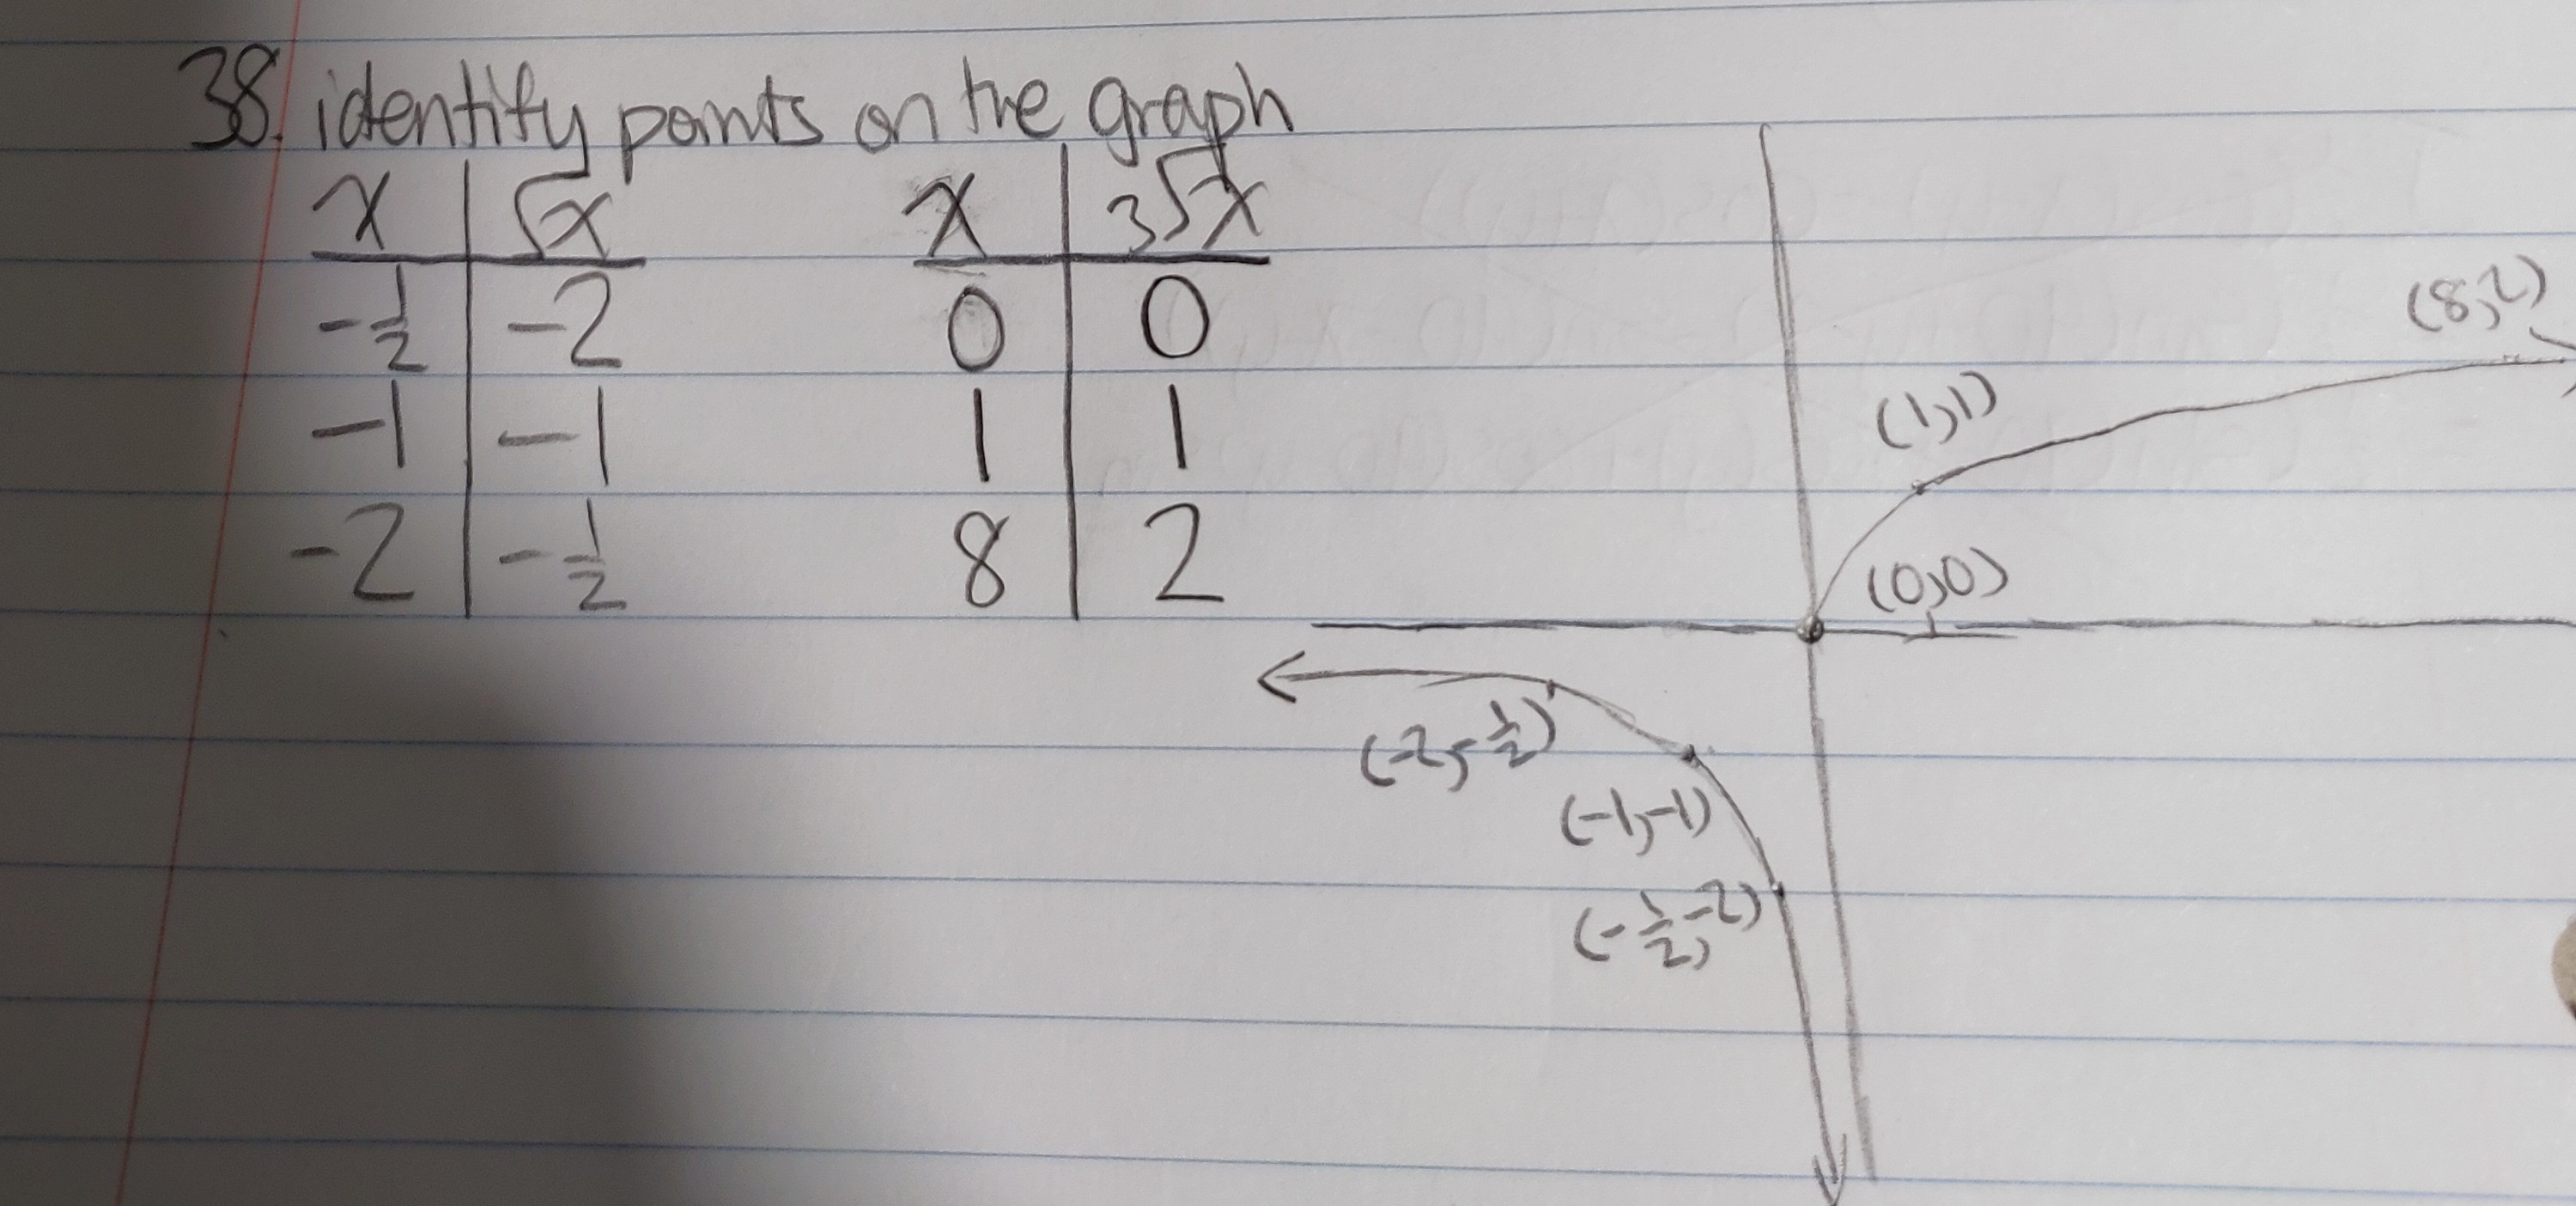 38. identify points on the graph
x √x x 3√x
-1/2 -2 0 0
-1 -1 1 1
-2 -1/2 8 2
(8,2)
(1,1)
(0,0)
(-2,-1/2)
(-1,-1)
(-1/2,-2)